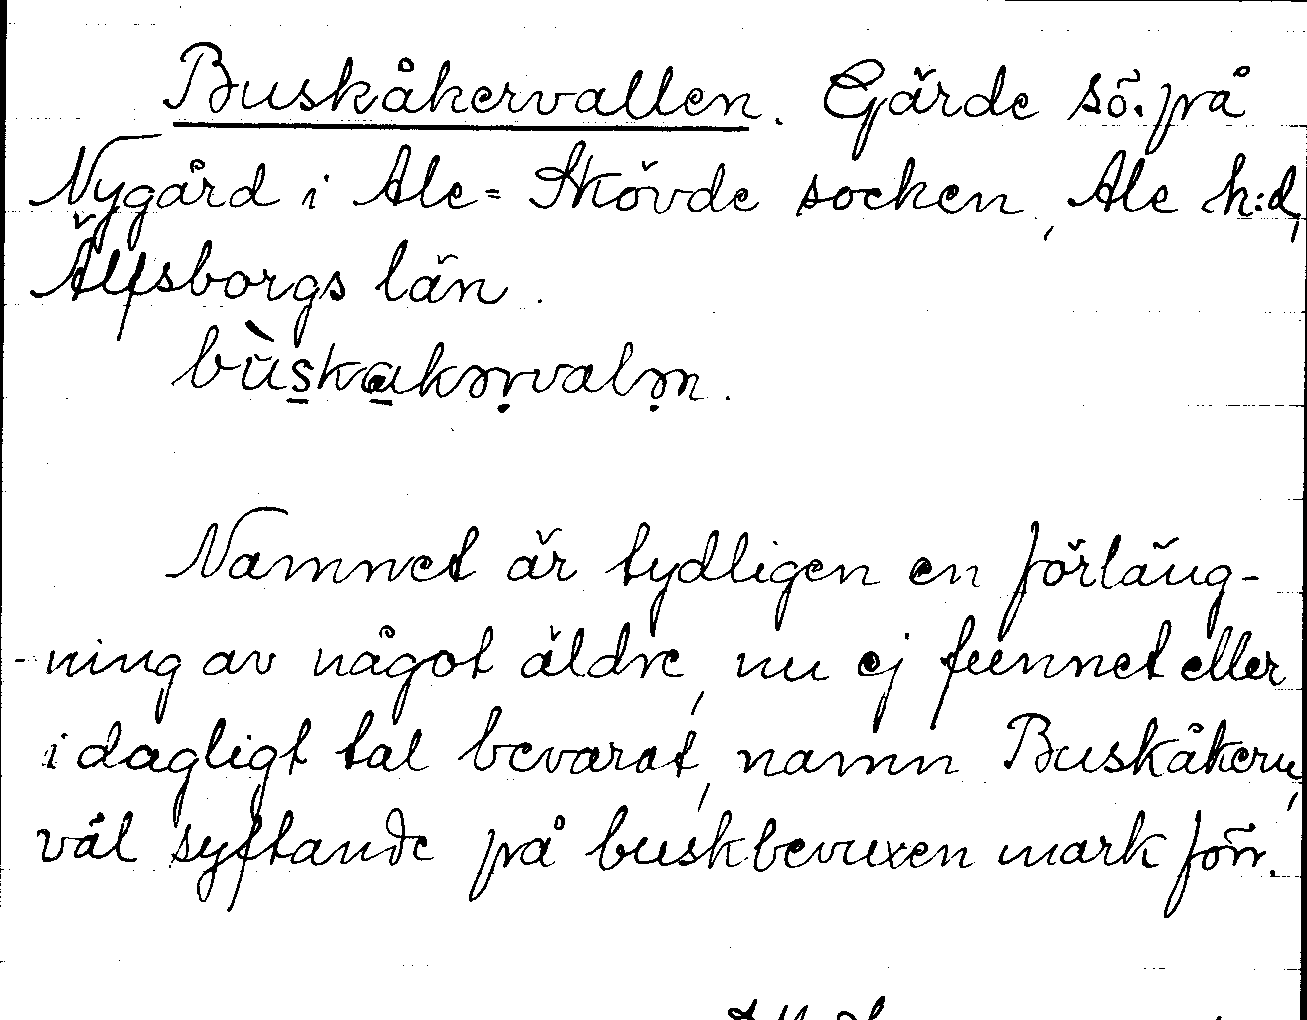 Buskåkervallen. Gärde sö. på
Nygård i Ale-Skövde socken, Ale h:d,
Älfsborgs län.
bùskakərvalən.
Namnet är tydligen en förläng-
-ning av något äldre, nu ej funnet eller
i dagligt tal bevarat, namn Buskåkern,
väl syftande på buskbevuxen mark förr.